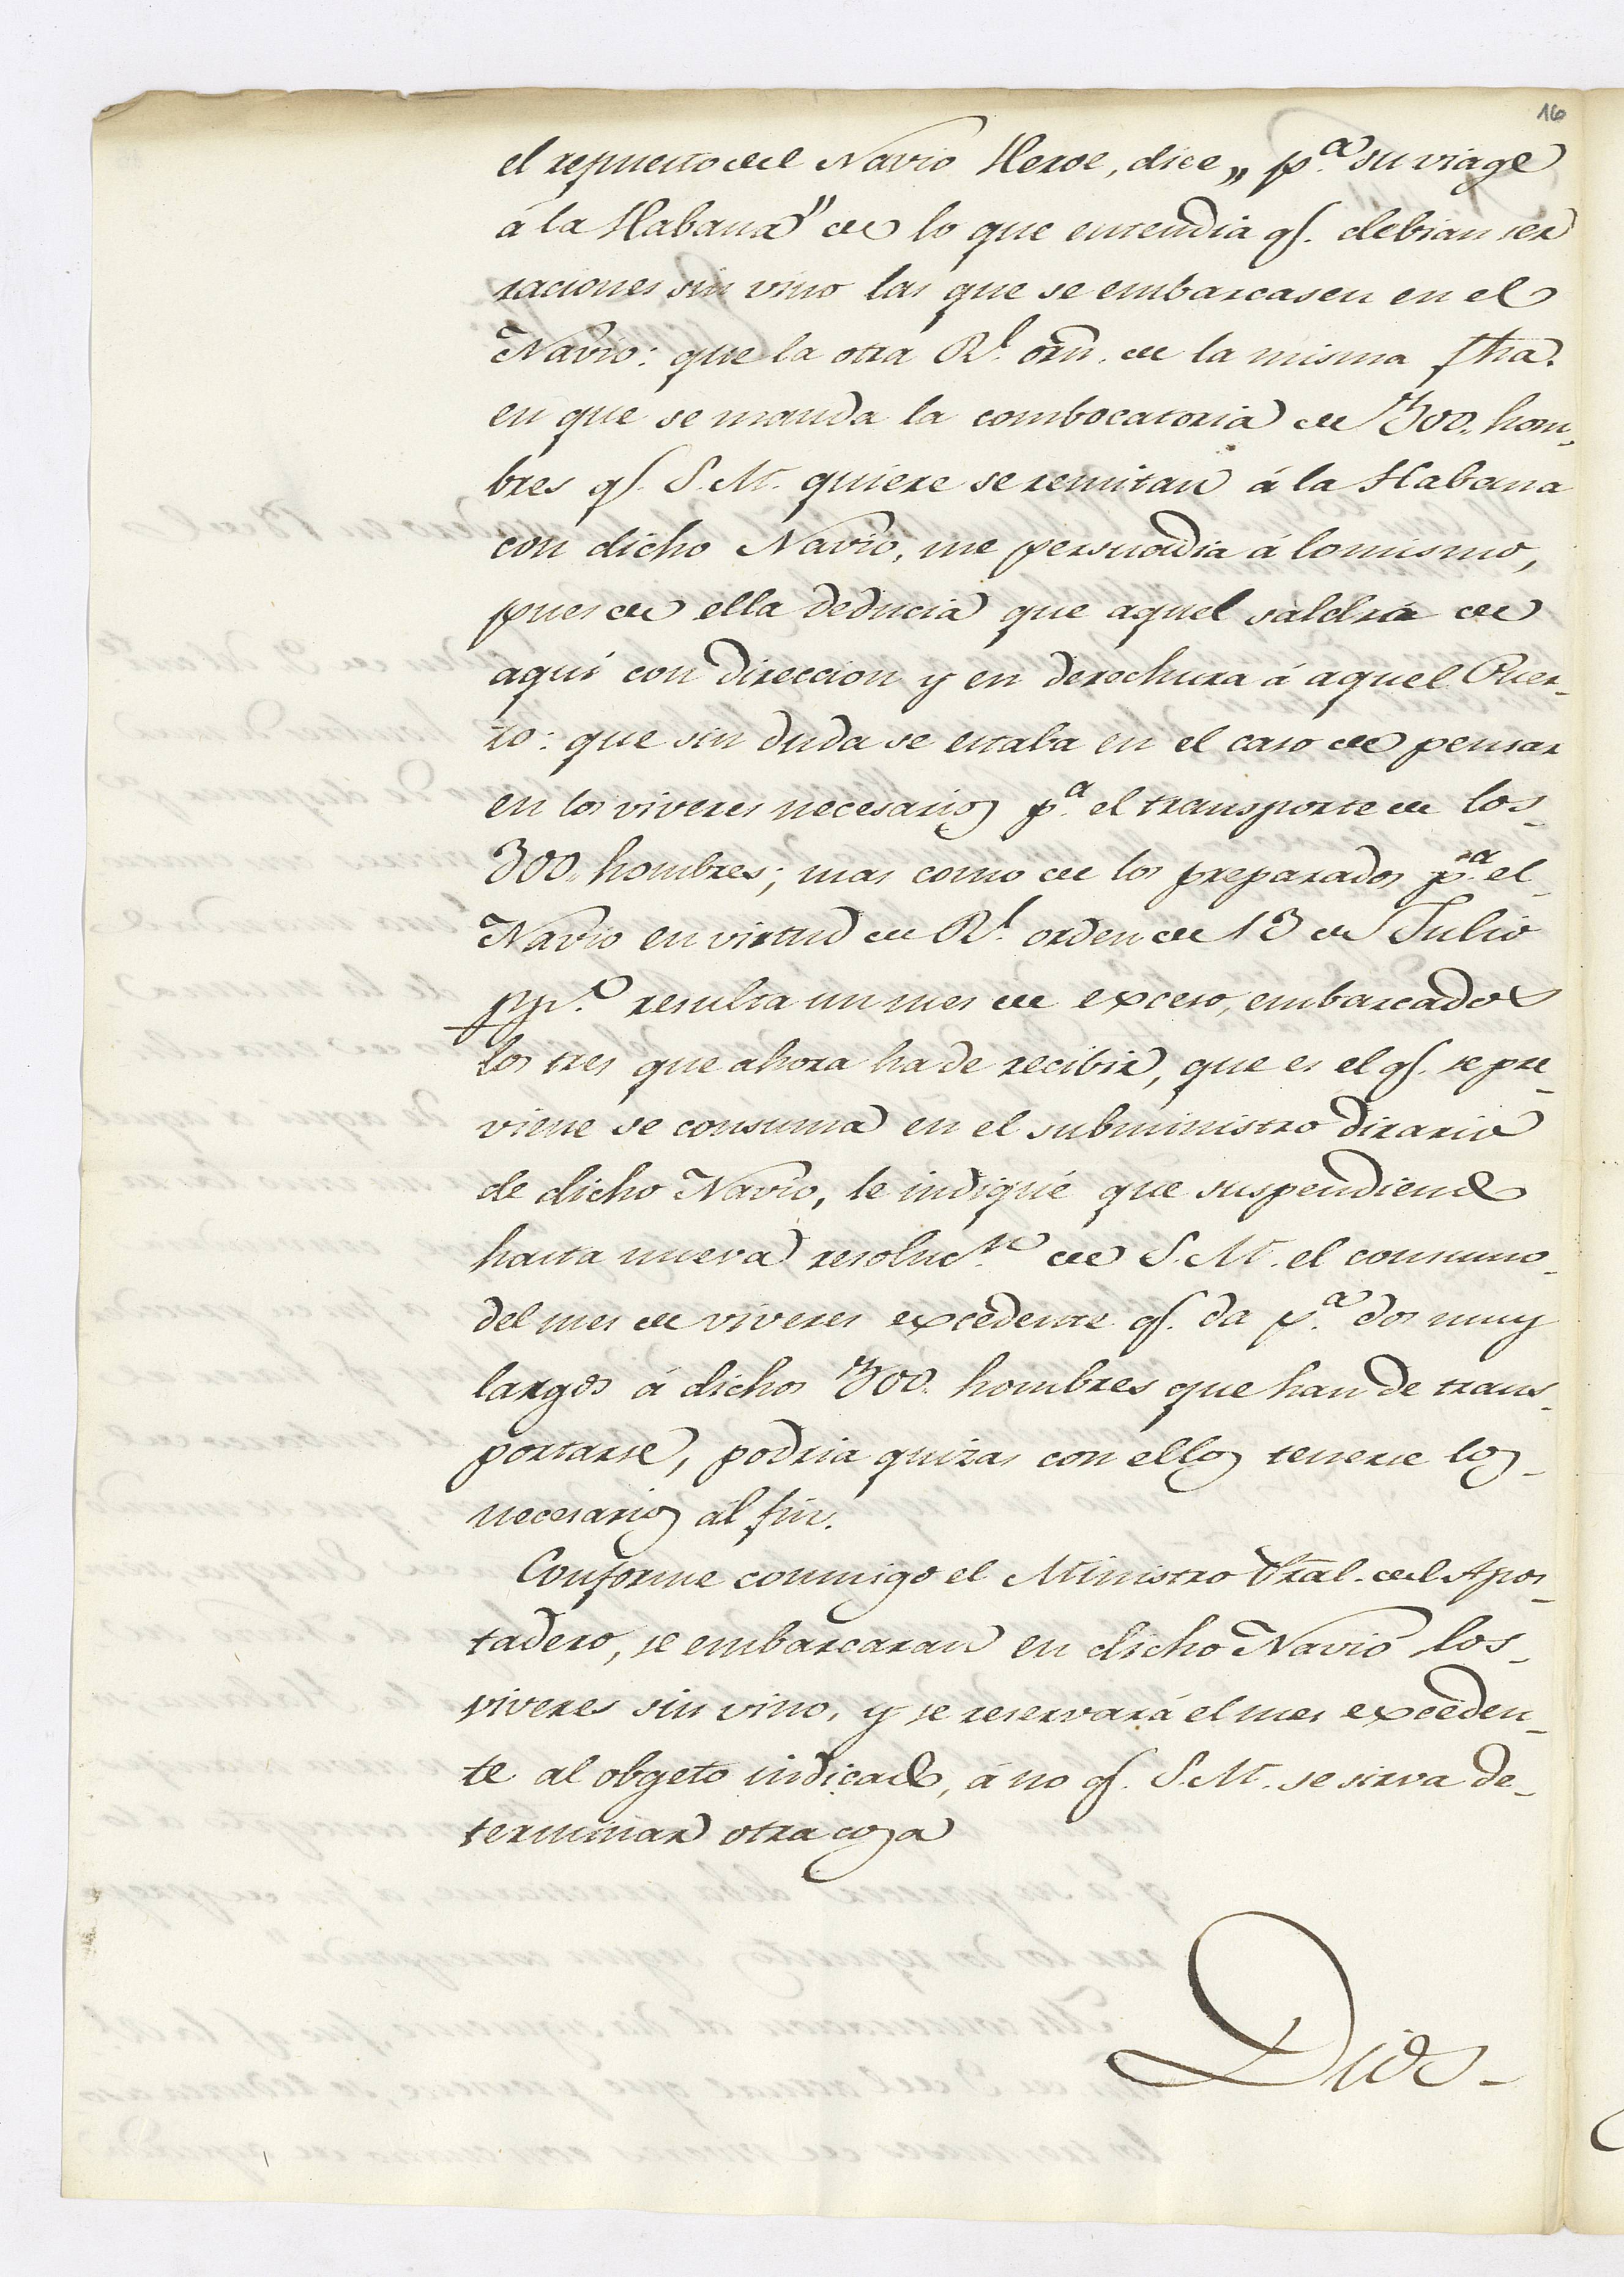 16
el repuesto del Navio Heroe, dice „ p.ª su viage
á la Habana" de lo que entendia q.e debian ser
raciones sin vino las que se embarcasen en el
Navio: que la otra R.l orn. de la misma fha.
en que se manda la combocatoria de 300. hom-
bres q.e S. M. quiere se remitan á la Habana
con dicho Navio, me persuadia á lo mismo,
pues de ella deducia que aquel saldria de
aqui con direccion y en derechura á aquel Puer-
to: que sin duda se estaba en el caso de pensar
en los viveres necesarios p.ª el transporte de los
300. hombres; mas como de los preparados p.ª el
Navio en virtud de R.l orden de 13 de Julio
pp.º resulta un mes de exceso, embarcados
los tres que ahora ha de recibir, que es el q.e se pre-
viene se consuma en el subministro dirario
de dicho Navio, le indiqué que suspendiendo
hasta nueva resoluc.n de S. M. el consumo
del mes de viveres excedente q.e da p.ª dos muy
largos á dichos 300. hombres que han de trans-
portarse, podria quizas con ellos tenerse los
necesarios al fin.
Conforme conmigo el Ministro Pral. del Apos-
tadero, se embarcaran en dicho Navio los
viveres sin vino, y se reservará el mes exceden-
te al obgeto indicado, á no q.e S. M. se sirva de-
terminar otra cosa
Dios